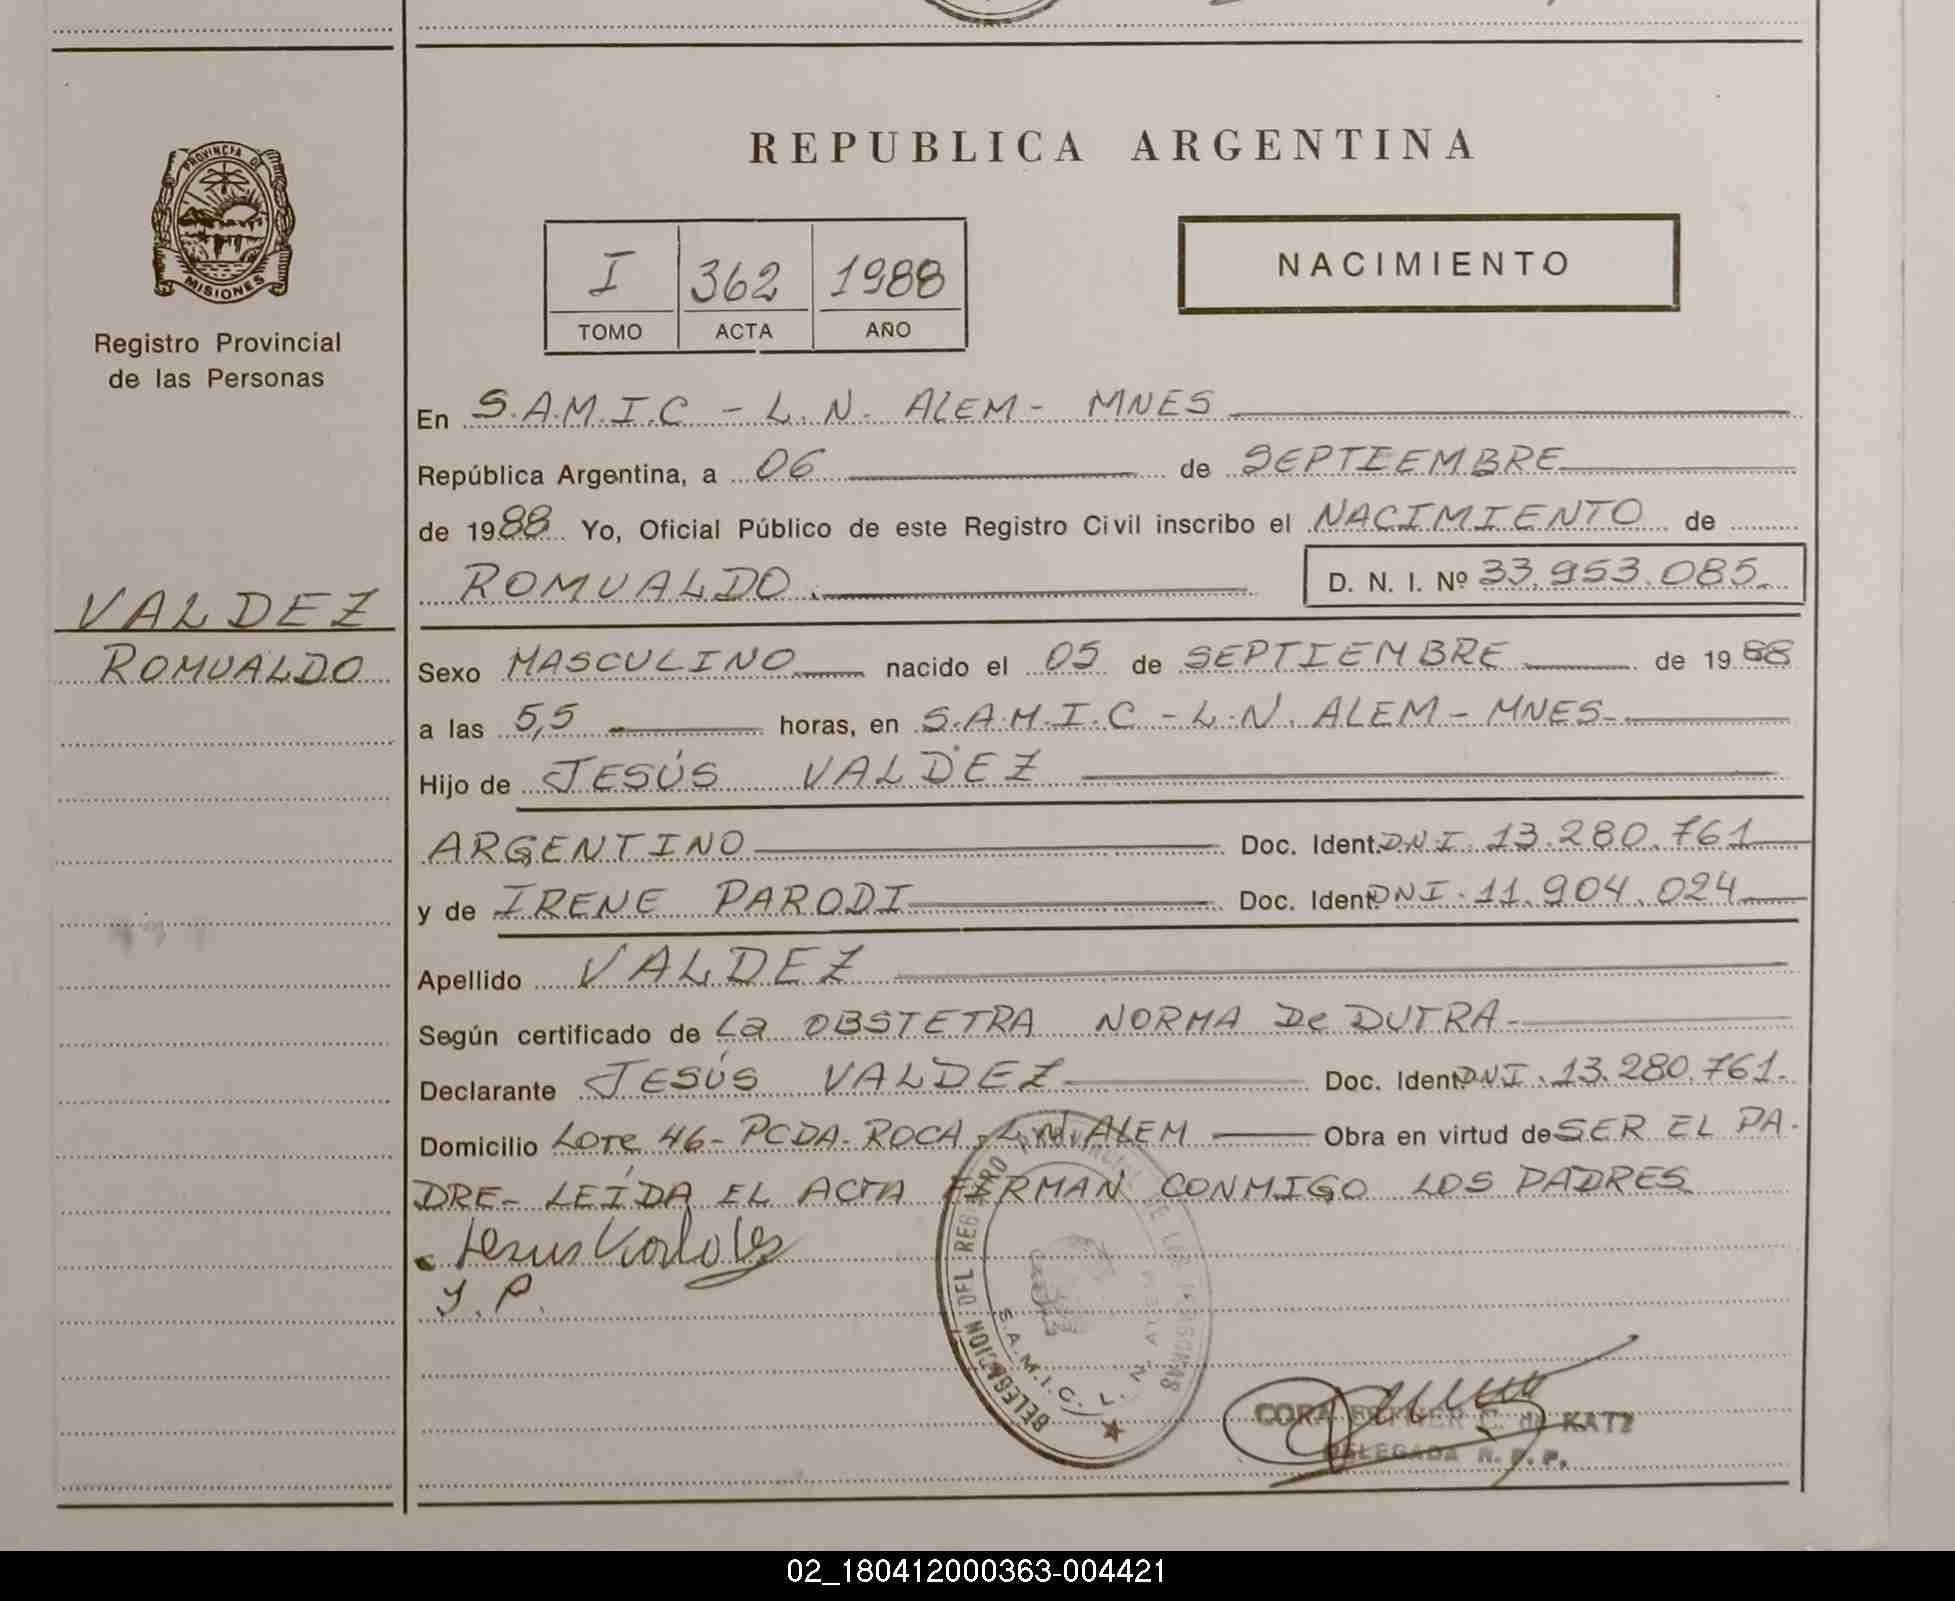 PROVINCIA DE
MISIONES
Registro Provincial
de las Personas
VALDEZ
ROMUALDO
REPUBLICA ARGENTINA
I 362 1988
TOMO ACTA AÑO
NACIMIENTO
En S.A.M.I.C - L.N. ALEM - MNES
República Argentina, a 06 de SEPTIEMBRE
de 1988 Yo, Oficial Público de este Registro Civil inscribo el NACIMIENTO de
ROMUALDO. D. N. I. Nº 33.953.085.
Sexo MASCULINO nacido el 05 de SEPTIEMBRE de 1988
a las 5,5 horas, en S.A.M.I.C - L.N. ALEM - MNES.
Hijo de JESÚS VALDEZ
ARGENTINO Doc. Ident. DNI. 13.280.761
y de IRENE PARODI Doc. Ident. DNI. 11.904.024
Apellido VALDEZ
Según certificado de La OBSTETRA NORMA De DUTRA.
Declarante JESÚS VALDEZ Doc. Ident. DNI. 13.280.761.
Domicilio Lote 46 - PCDA. ROCA - L.N. ALEM Obra en virtud de SER EL PA-
DRE - LEÍDA EL ACTA FIRMAN CONMIGO LOS PADRES
Y. P.
DELEGACION DEL REGISTRO PROVINCIAL DE LAS PERSONAS
S.A.M.I.C. L. N. ALEM
CORA ESTHER C. de KATZ
DELEGADA R. P. P.
02_180412000363-004421